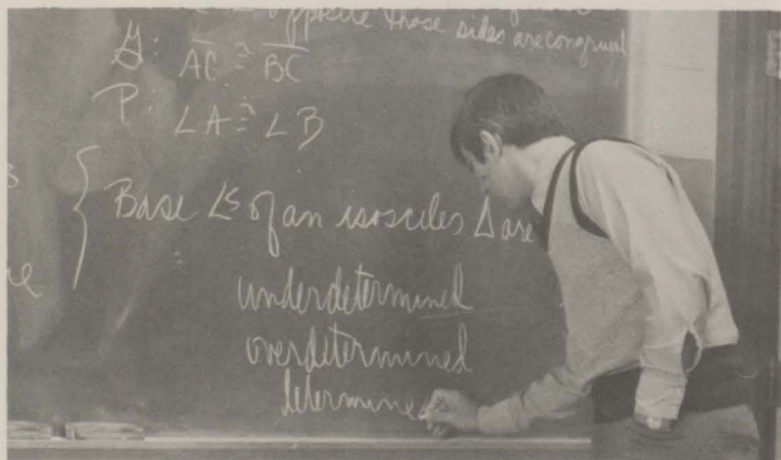 opposite those sides are congruent
G: AC ≅ BC
P: ∠A ≅ ∠B
Base ∠s of an isosciles Δ are
underdetermined
overdetermined
determined